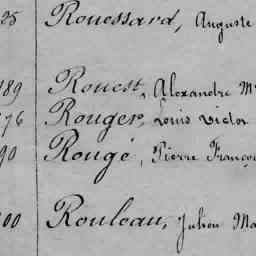 25 Rouessard, Auguste
189 Rouest, Alexandre M
176 Rouger, Louis Victor
90 Rougé, Pierre Franço
00 Rouleau, Julien Ma